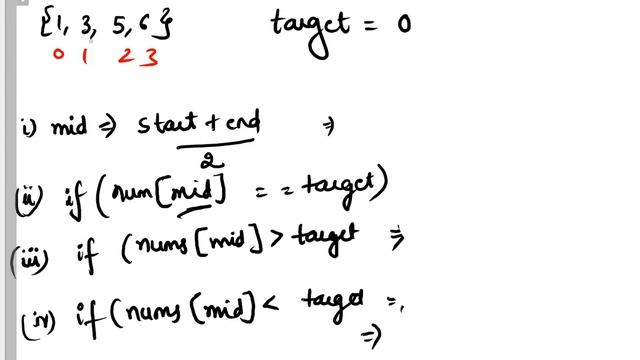 {1, 3, 5, 6} target = 0
0 1 2 3
i) mid => start + end =>
2
(ii) if (num[mid] == target)
(iii) if (nums[mid] > target =>
(iv) if (nums[mid] < target =,
=>